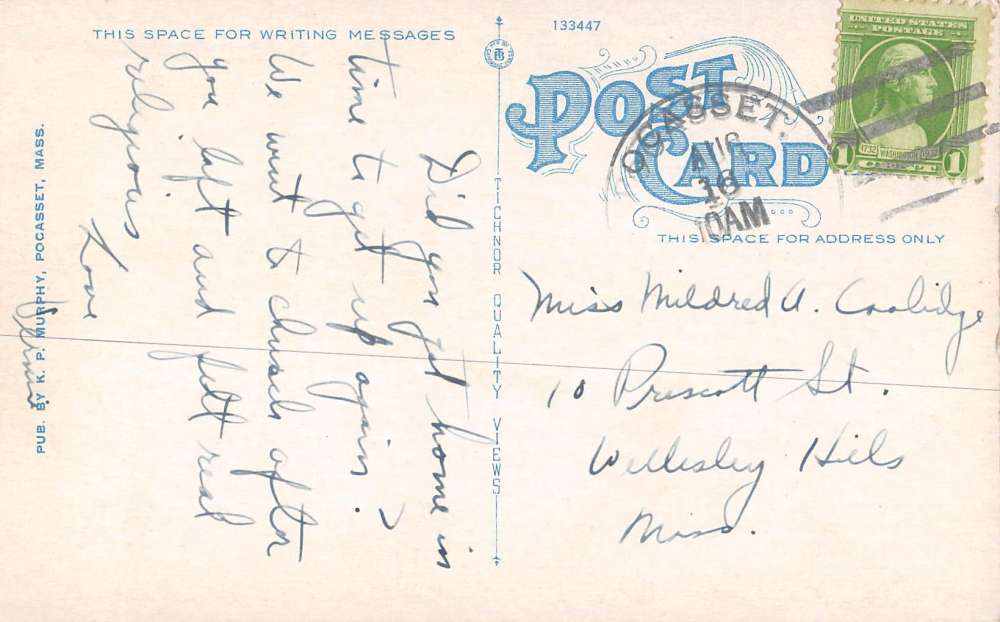 THIS SPACE FOR WRITING MESSAGES
133447
POST
CARD
UNITED STATES
POSTAGE
1732 WASHINGTON
1 CENT 1
OCASSET.
AUG
16
10AM
THIS SPACE FOR ADDRESS ONLY
TICHNOR QUALITY VIEWS
PUB. BY K. P. MURPHY, POCASSET, MASS.
Did you get home in
time to get up again?
We went to church after
you left and felt real
religious
Love
Miss Mildred A. Coolidge
10 Prescott St.
Wellesley Hills
Mass.